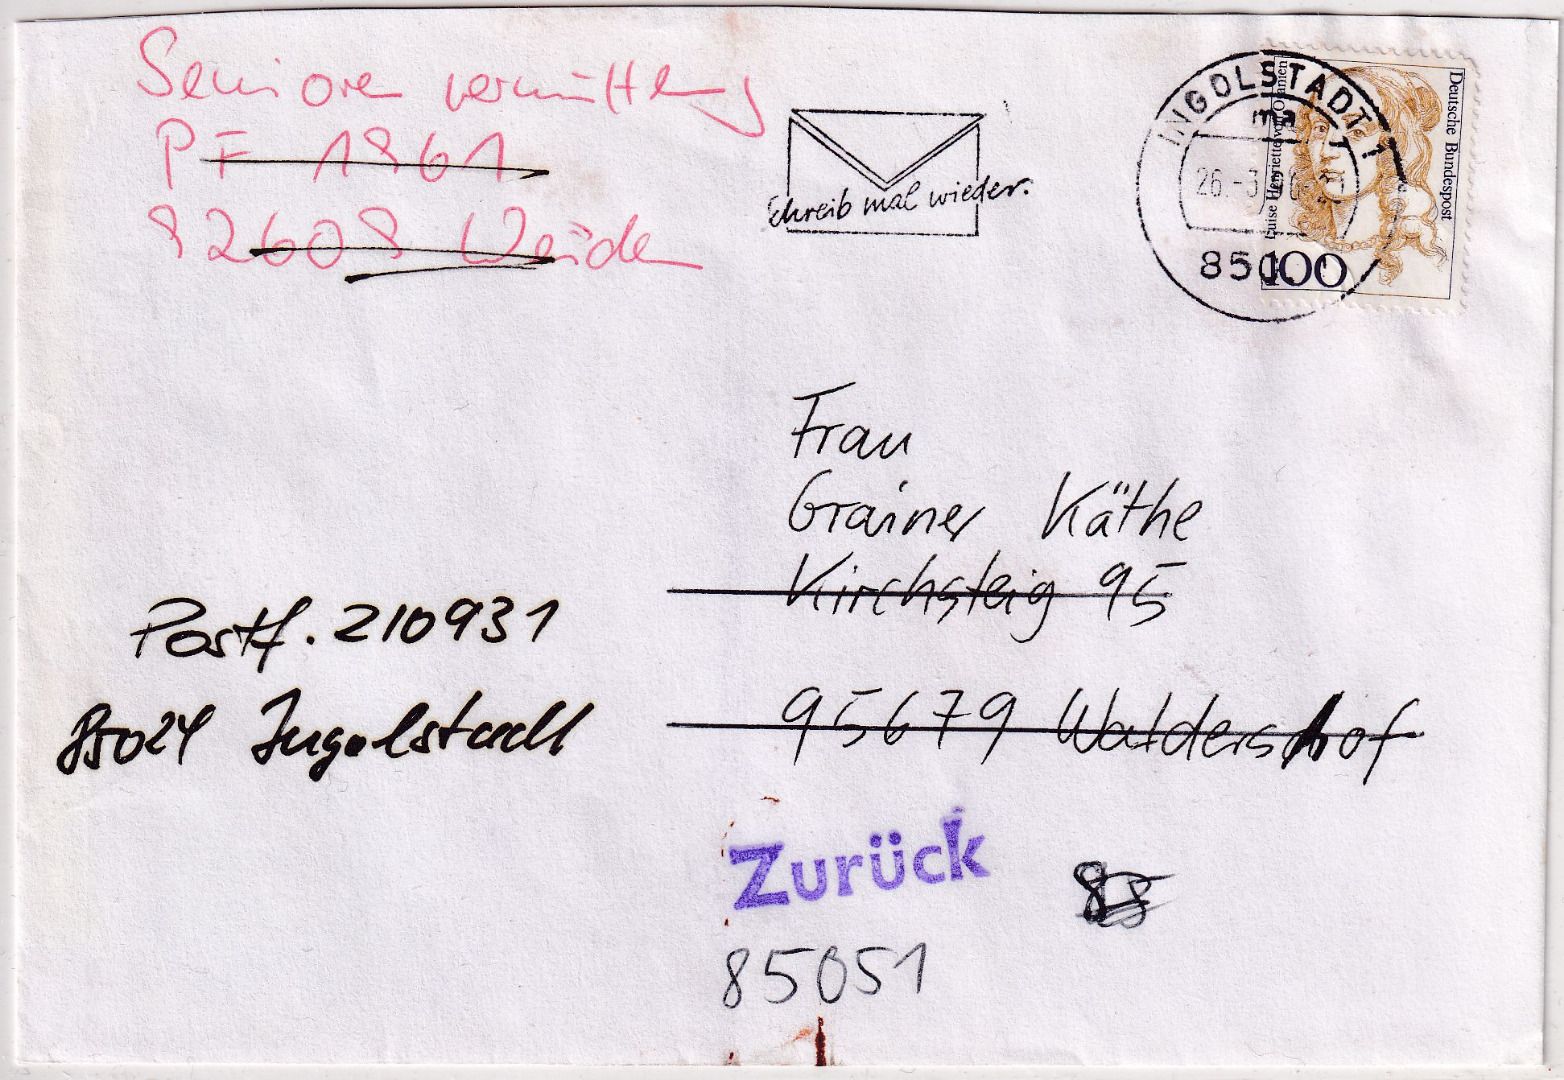 Senioren vermittlung
PF 1861
92608 Weiden
Schreib mal wieder.
INGOLSTADT 1
ma
26.-3
850
Deutsche Bundespost
Luise Henriette von Oranien
100
Frau
Grainer Käthe
Kirchsteig 95
95679 Waldershof
Postf. 210931
85024 Ingolstadt
Zurück
85051